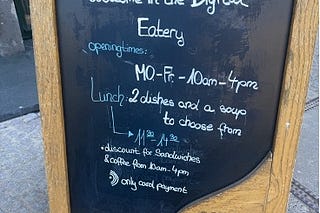 Welcome in the Digital
Eatery
openingtimes:
MO-Fr. - 10am - 4pm
Lunch: 2 dishes and a soup
to choose from
11³⁰ - 14³⁰
• discount for Sandwiches
& coffee from 10am - 4pm
only card payment